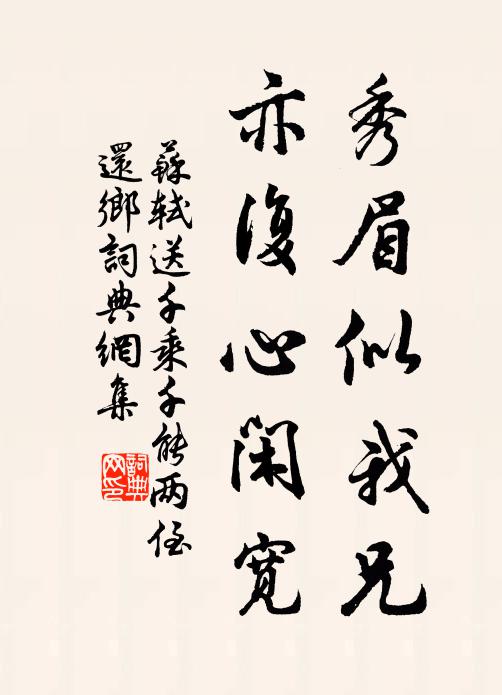 秀眉似我兄
亦復心閑寬
蘇軾送千乘千能两侄
還鄉詞典網集
詞典
网印